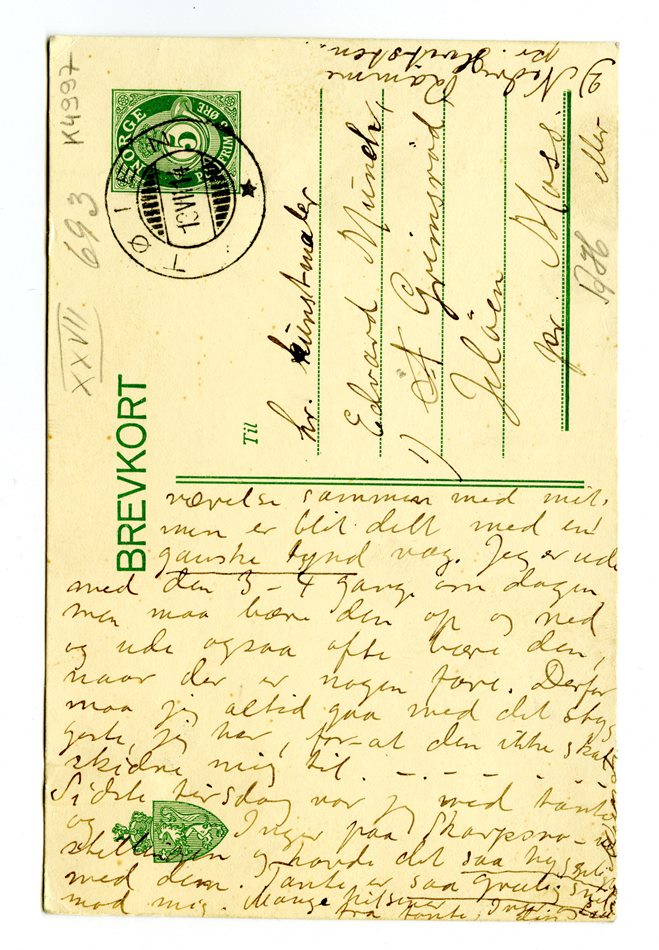 K4997
693
XXVII
NORGE
5
5 ØRE
TØIEN
18 VII 14
BREVKORT
Til
hr. kunstmaler
Edvard Munch,
1) Grimsrød
Jeløen
pr. Moss.
eller
2) Nedre Ramme
pr. Hvitsten.
værelse sammen med mit.
men er blit delt med en
ganske tynd væg. Jeg er ude
med den 3-4 gange om dagen,
men maa bære den op og ned
og ude ogsaa ofte bære den,
naar der er nogen fare. Derfor
maa jeg altid gaa med det styg
geste, jeg har, for at den ikke skal
skidne mig til. - . - . -
Sidste tirsdag var jeg med tante
og Inger paa Skarpsno-u
stillingen og havde det saa hyggelig
med dem. Tante er saa grulig snil
mod mig. Mange hilsener
fra tante, Inger og
din